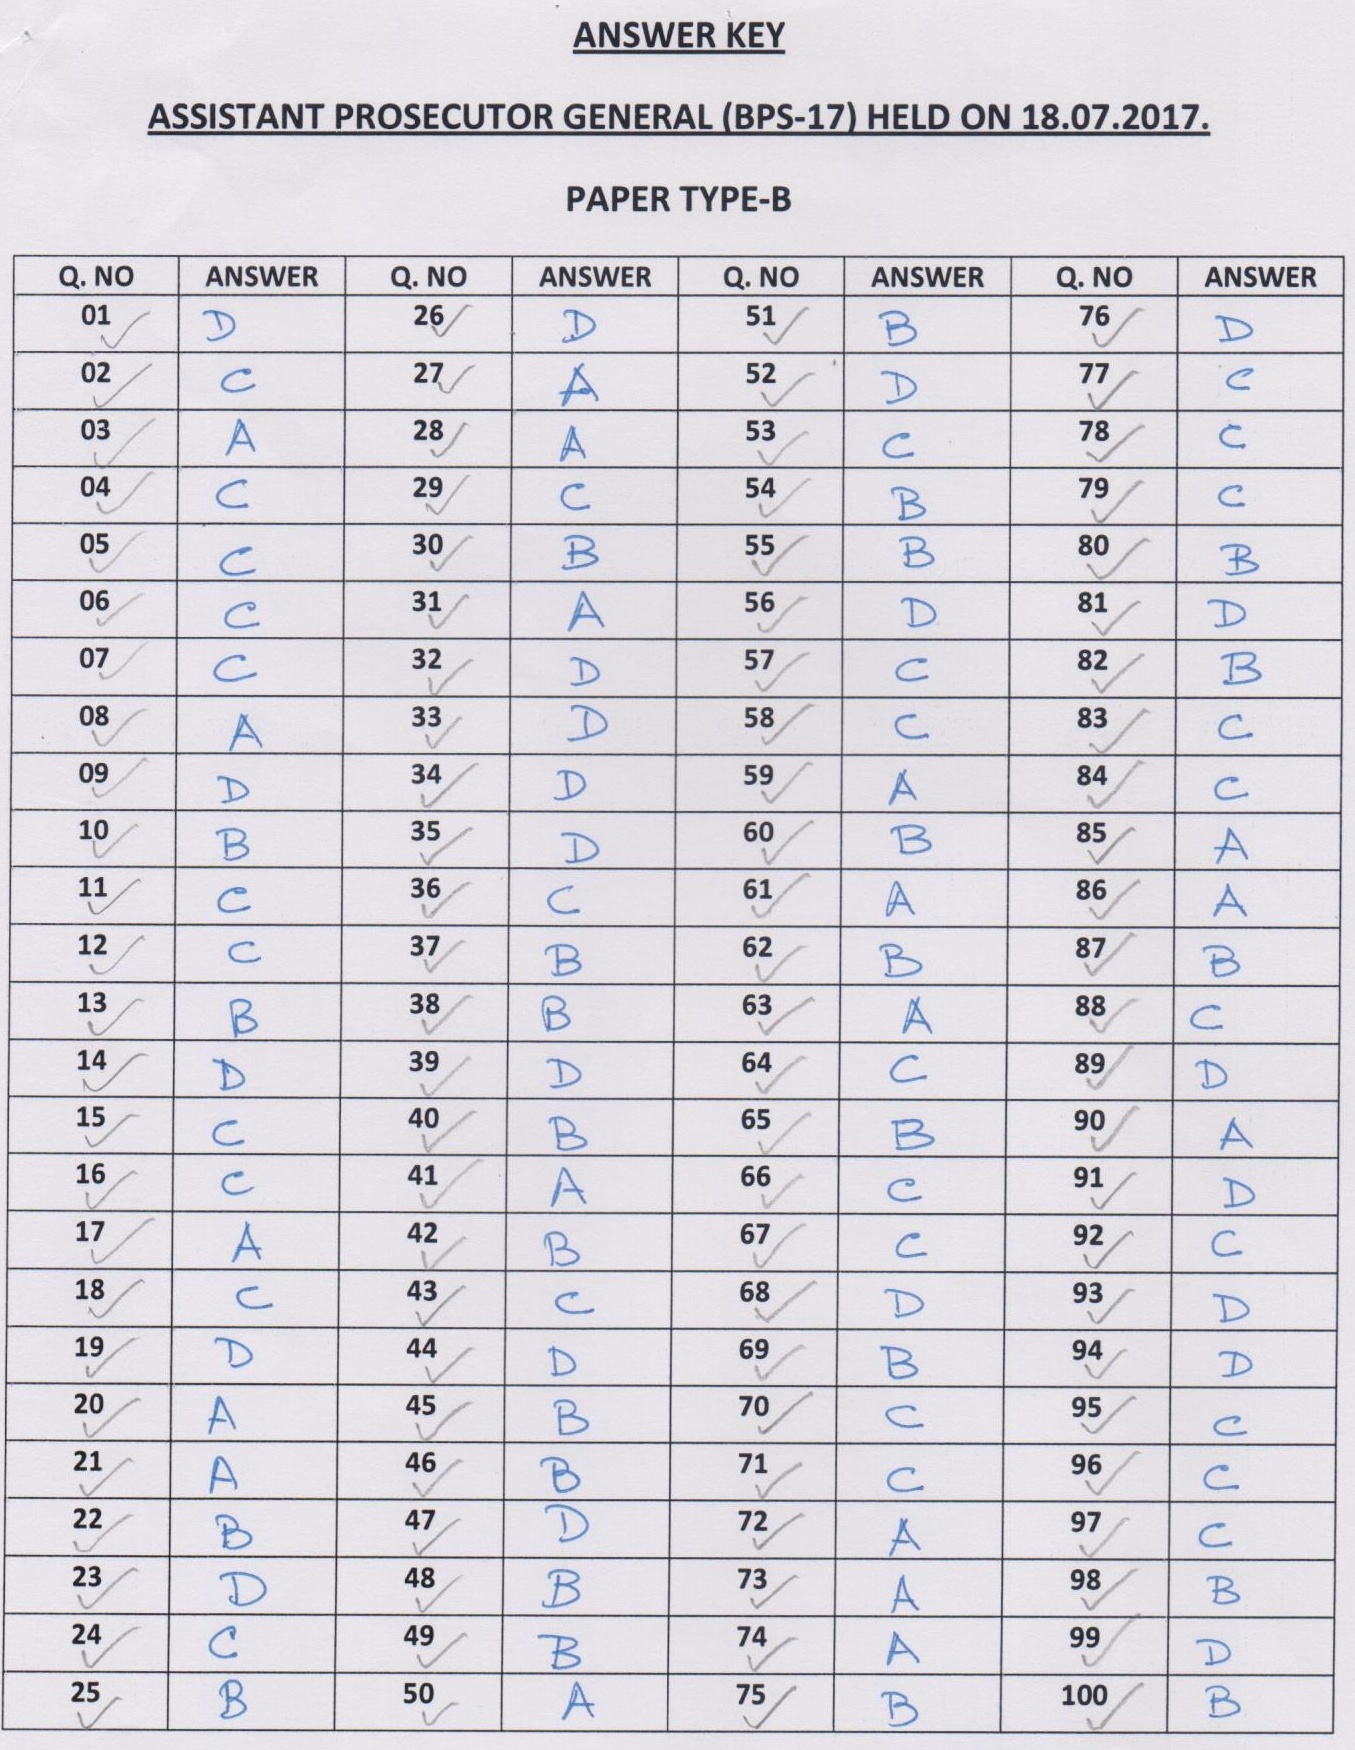 ANSWER KEY
ASSISTANT PROSECUTOR GENERAL (BPS-17) HELD ON 18.07.2017.
PAPER TYPE-B
Q. NO ANSWER Q. NO ANSWER Q. NO ANSWER Q. NO ANSWER
01 D 26 D 51 B 76 D
02 C 27 A 52 D 77 C
03 A 28 A 53 C 78 C
04 C 29 C 54 B 79 C
05 C 30 B 55 B 80 B
06 C 31 A 56 D 81 D
07 C 32 D 57 C 82 B
08 A 33 D 58 C 83 C
09 D 34 D 59 A 84 C
10 B 35 D 60 B 85 A
11 C 36 C 61 A 86 A
12 C 37 B 62 B 87 B
13 B 38 B 63 A 88 C
14 D 39 D 64 C 89 D
15 C 40 B 65 B 90 A
16 C 41 A 66 C 91 D
17 A 42 B 67 C 92 C
18 C 43 C 68 D 93 D
19 D 44 D 69 B 94 D
20 A 45 B 70 C 95 C
21 A 46 B 71 C 96 C
22 B 47 D 72 A 97 C
23 D 48 B 73 A 98 B
24 C 49 B 74 A 99 D
25 B 50 A 75 B 100 B